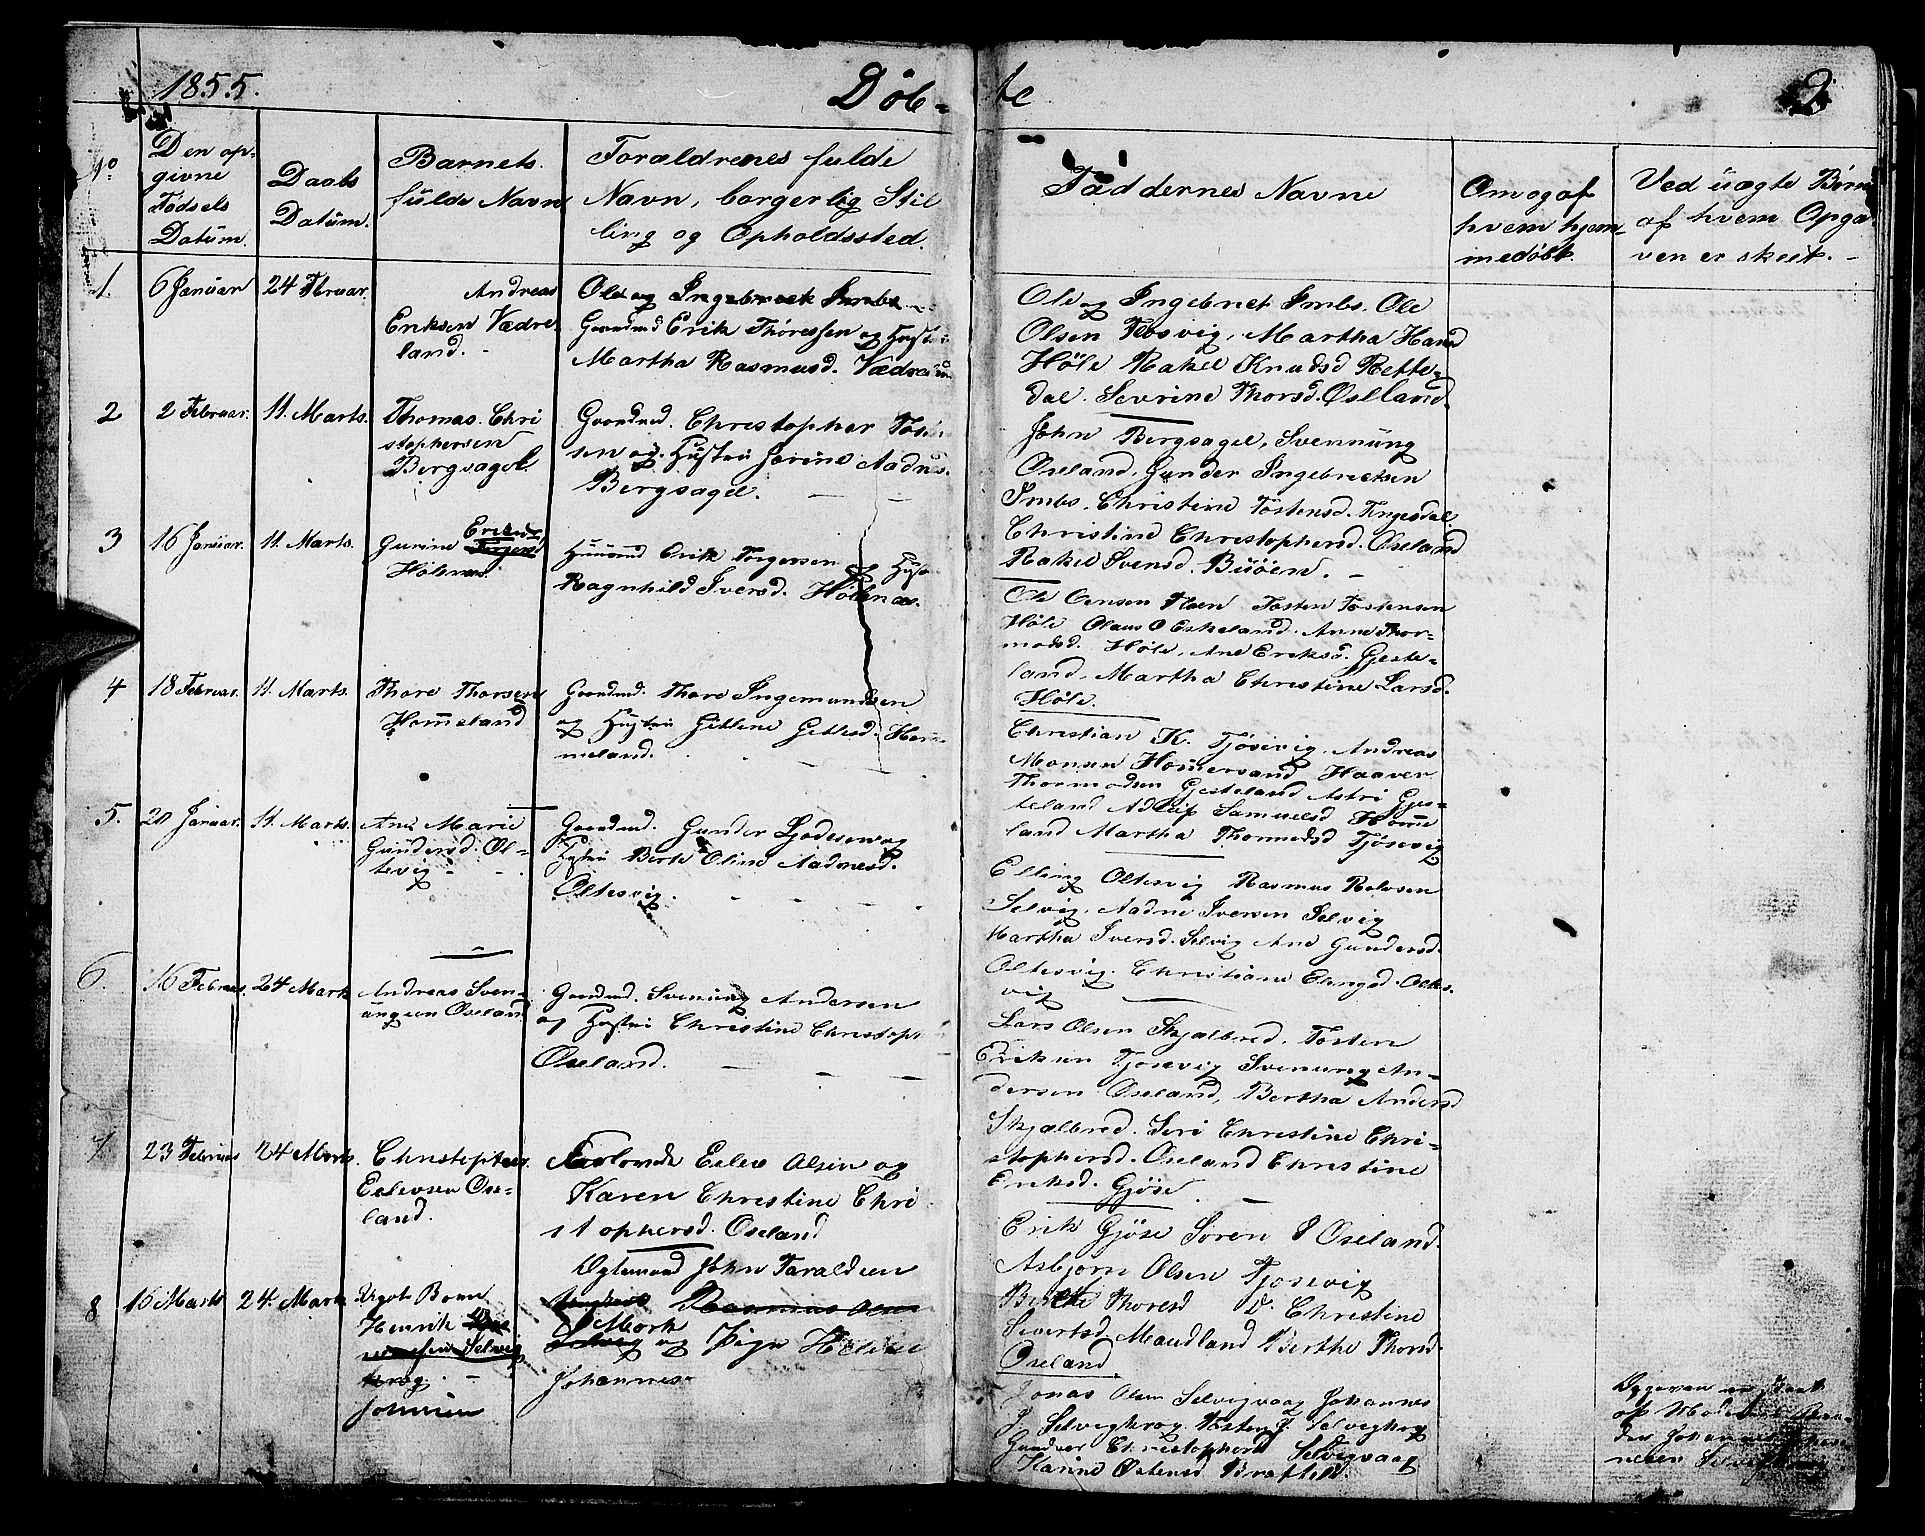 1855.
Döb-
te
2
No
Den op-
givne
Fødsels
Datüm.
Daabs
Datüm.
Barnets
fülde Navn
Forældrenes fulde
Navn, borgerlig Stil
ling og Opholdssted.
Fadderenes Navne
Om og af
hvem hjem-
medøbt.
Ved üægte Børn
af hvem Opga
ven er skeet. -
1
6 Janüar
24 Februar.
Andreas
Eriksen Vædre
land. -
Ole og Ingebrect Imbs
Gaardmd Erik Thoressen og Hustrü
Martha Rasmusd. Vædreland
Ole og Ingebret Imbs. Ole
Olsen Tosvig, Martha Hansd
Höle Rakel Knudsd Rette-
dal. Severine Thorsd. Östland.
2
2 Februar.
11. Marts.
Thomas Chri
stophersen
Bergsagel
Gaardmd. Christopher Tosten
sen og Hustrü Jorine Aadnesd.
Bergsagel.
John Bergsagel, Svennüng
Oseland, Gunder Ingebrectsen
Imbs, Christine Tostensd. Tengesdal
Christine Christophersd. Oseland
Rakel Svensd. Büöen. -
3
16 Janüar.
11. Marts.
Gurine Eriksd
Hölenæs.
Hüüsmd Erik Torgersen og Hustrü
Ragnhild Iversd. Hölenæs.
Ole Hoen Tosten Tostensen
Höle Olaus O Eskeland. Anne Thor-
modsd. Höle, Ane Eriksd. Gjeste-
land, Martha Christine Larsd.
Höle.
4
18 Februar.
11. Marts.
Thore Thorsen
Hommeland
Gaardmd. Thore Ingemundsen
og Hustrü Gittene Gittesd. Hom-
meland.
Christian K. Tjösevig, Andreas
Monsen Hommersand Haaver
Thormodsen Gjesteland Astri Gjes-
teland Samuelsd Homme
land Martha Thormodsd Tjösevig
5.
20 Janüar.
11. Marts.
Ane Marie
Gündersd. Ol-
tevig -
Gaardmd. Gunder og
Hustrü Berte Oline Aadnesd.
Oltesvig.
Elling Oltesvig Rasmus Rolvsen
Selvig, Aadne Iversen Selvig
Martha Iversd. Selvig Ane Gundersd.
Oltesvig. Christiane Elingsd. Oltes-
vig
6.
16 Februar.
24 Marts
Andreas Sven-
üngsen Oseland
Gaardmd. Svenüng Andersen
og Hustrü Christine Christoph
Oseland.
Lars Olsen Skjælbred. Tosten
Eriksen Tjosevig Svenung An-
dersen Oseland, Bertha Andersd
Skjælbred. Seri Christine Chri-
stophersd. Oseland Christine
Eriksd. Gjöse.
7
23 Februar
24 Marts.
Christopher
Eelevsen Ose-
land.
Forlovede Eelev Olsen og
Karen Christine Chri
stophersd. Oseland
Erik Gjöse Soren P Oseland.
Asbjorn Olsen Tjosevig
Berte Thoresd D. Christine
Sivertsd Maudland Berthe Thorsd.
Oseland
8
16 Marts
24. Marts
Uægt Barn
Henrik
Selvig
krog. -
Johnsen
Ügtemand John Taraldsen
Rasmus Olsen
Mork
og Helene
Johannes
Jonas Olsen Selvigvaag Johannes
J. Selvigkrog Tosten J. Selvigkrog
Gundvor Christophersd Selvigvaag
Karine Ostensd Bratteli.
Opgaven er skeet
af Moderens
der Johannes
nesen